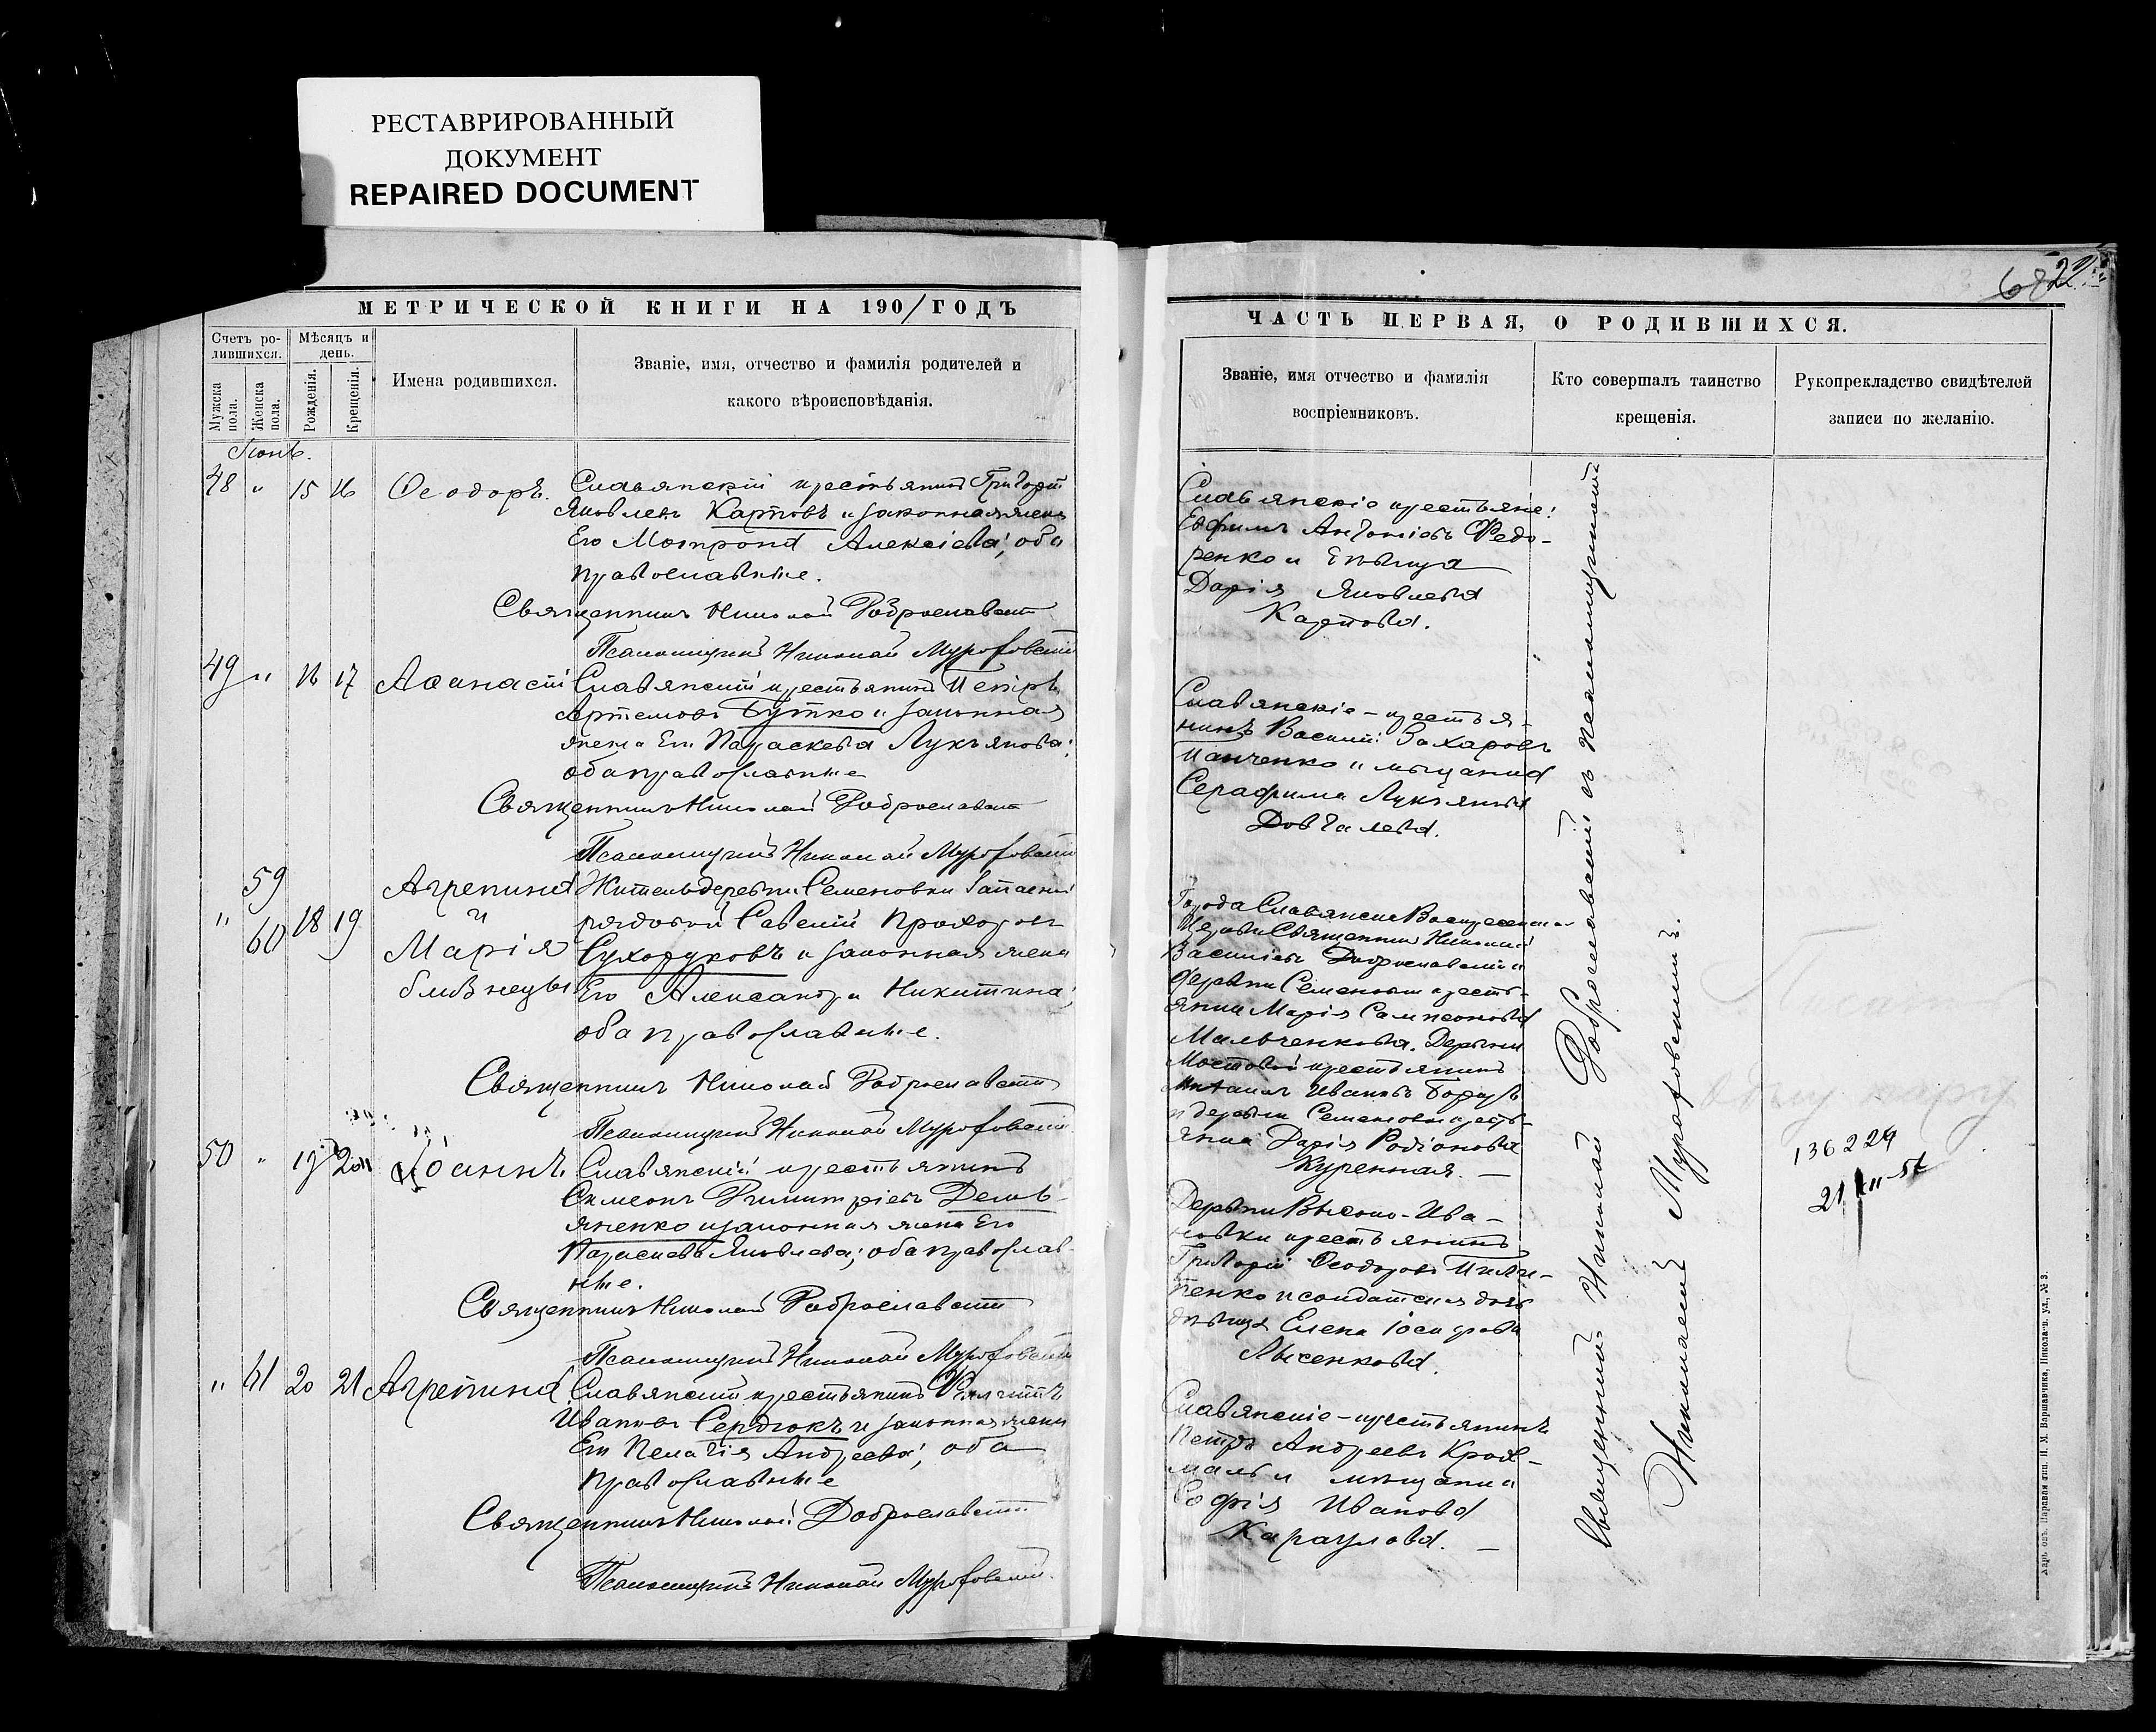 РЕСТАВРИРОВАННЫЙ
ДОКУМЕНТ
REPAIRED DOCUMENT
МЕТРИЧЕСКОЙ КНИГИ НА 190/ГОДЪ
Счетъ ро-
дившихся.
Мужска
пола.
Женска
пола.
Мѣсяцъ и
день.
Рожденія.
Крещенія.
Имена родившихся.
Званіе, имя, отчество и фамилія родителей и
какого вѣроисповѣданія.
48 " 15 16 Ѳеодоръ. Славянскій крестьянинъ Григорій
Яковлевъ Карповъ и законная жена
Его Матрона Алексіева; оба
православные.
Священникъ Николай Доброславскій
Псаломщикъ Николай
49 " 16 17 Аѳанасій Славянскій крестьянинъ Петръ
Артемовъ Бутко и законная
жена Его Параскева Лукьянова;
оба православные
Священникъ Николай Доброславскій
Псаломщикъ Николай
59
60
" 18 19 Агрепина
и
Марія
близнецы
Житель деревни Семеновки Запасный
рядовой Савелій Прохоровъ
Сухоруковъ и законная жена
Его Александра Никитина;
оба православные.
Священникъ Николай Доброславскій
Псаломщикъ Николай
50 " 19 20 Іоаннъ Славянскій крестьянинъ
Симеонъ Димитріевъ Демь-
яненко и законная жена Его
Яковлева; оба православ-
ные.
Священникъ Николай Доброславскій
Псаломщикъ Николай
" 61 20 21 Агрепина Славянскій крестьянинъ
Ивановъ Сердюкъ и законная жена
Его Пелагія Андреева; оба
православные
Священникъ Николай Доброславскій
Псаломщикъ Николай
22
ЧАСТЬ ПЕРВАЯ, О РОДИВШИХСЯ.
Званіе, имя отчество и фамилія
воспріемниковъ.
Кто совершалъ таинство
крещенія.
Рукоприкладство свидѣтелей
записи по желанію.
Славянскіе крестьяне:
Евфимъ Антоніевъ Федо-
ренко и дѣвица
Дарія Яковлева
Карпова.
Славянскіе - крестья-
нинъ Василій Захаровъ
Панченко и мѣщанка
Серафима Лукьянова
Довгалева.
Города Славянска
Церкви Священникъ Николай
Василіевъ Доброславскій и
деревни Семеновки кресть-
янка Марія Сампсонова
Мальченкова. Деревни
Мостовой крестьянинъ
Михаилъ Ивановъ
и деревни Семеновки кресть-
янка Дарія Родіонова
Куренная. —
Деревни Высоко-Ива-
новки крестьянинъ
Григорій Ѳеодоровъ
и солдатская дочь
дѣвица Елена Іосифова
Лысенкова.
Славянскіе - крестьянинъ
Петръ Андреевъ
и мѣщанка
Софія Иванова
Караулова. —
Священникъ Николай Доброславскій съ Псаломщикомъ
Николаемъ
136229